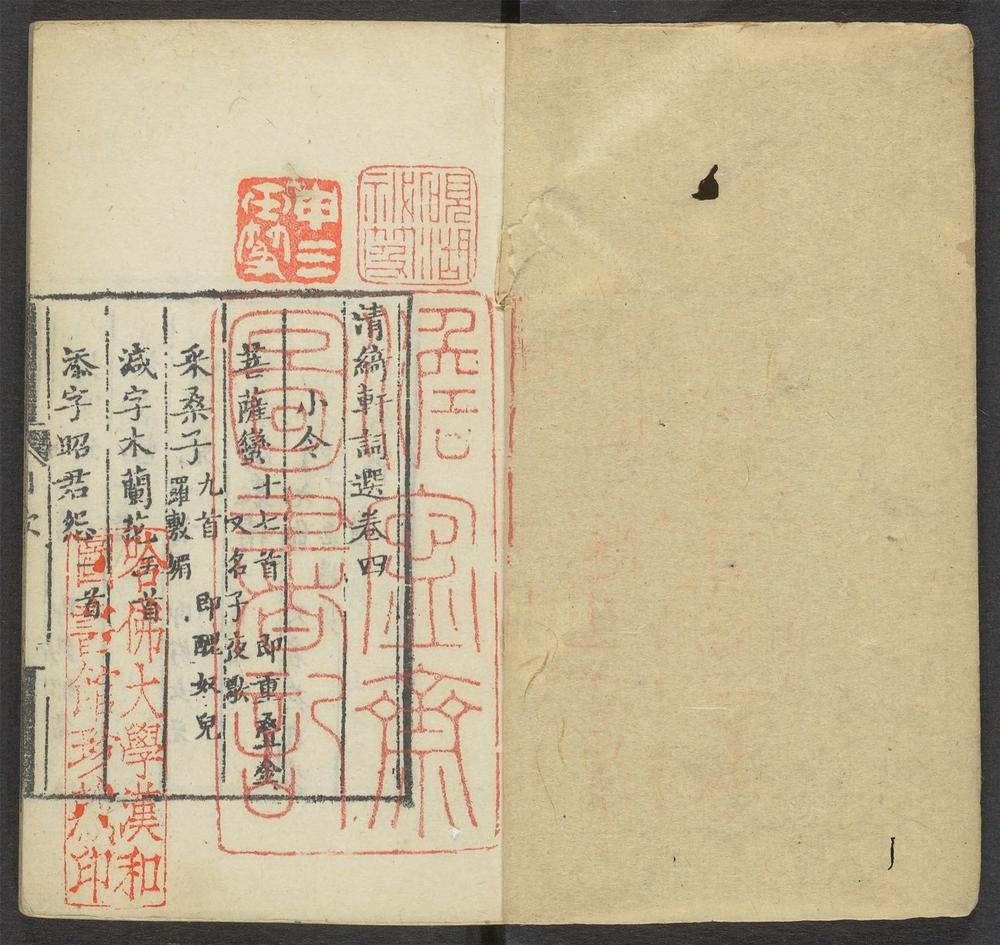 清綺軒詞選卷四
小令
菩薩蠻十七首 即重疊金
又名子夜歌
采桑子九首 即醜奴兒
羅敷媚
減字木蘭花五首
添字昭君怨一首
目次
哈佛大學漢和
圖書館珍藏印